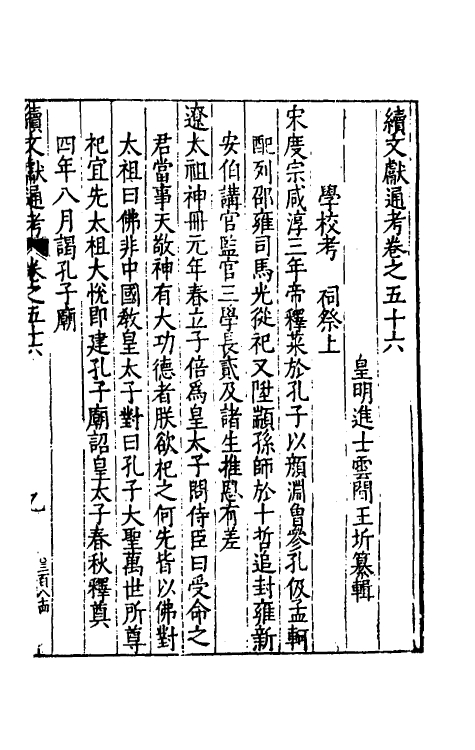 續文獻通考卷之五十六
皇明進士雲間王圻纂輯
學校考　祠祭上
宋度宗咸淳三年帝釋菜於孔子以顏淵曾參孔伋孟軻
配列邵雍司馬光從祀又陞顓孫師於十哲追封雍新
安伯講官監官三學長貳及諸生推恩有差
遼太祖神冊元年春立子倍為皇太子問侍臣曰受命之
君當事天敬神有大功德者朕欲祀之何先皆以佛對
太祖曰佛非中國教皇太子對曰孔子大聖萬世所尊
祀宜先太祖大悅即建孔子廟詔皇太子春秋釋奠
四年八月謁孔子廟
續文獻通考　卷之五十六